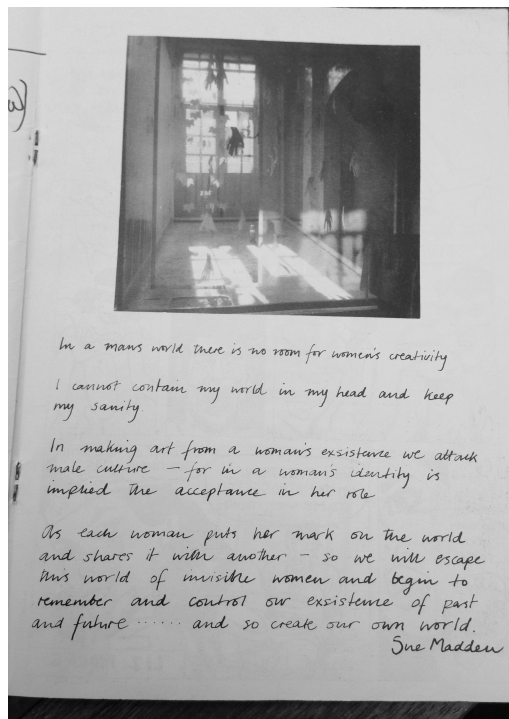 (3)
In a mans world there is no room for women's creativity
I cannot contain my world in my head and keep
my sanity.
In making art from a woman's exsistence we attack
male culture – for in a woman's identity is
implied the acceptance in her role
As each woman puts her mark on the world
and shares it with another – so we will escape
this world of invisible women and begin to
remember and control our exsistence of past
and future ...... and so create our own world.
Sue Madden